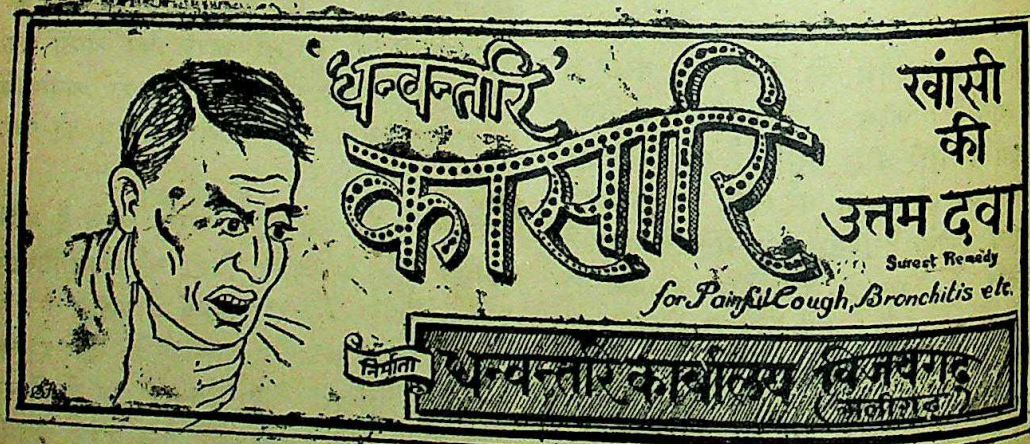 'धन्वन्तरि'
कासारि
खांसी
की
उत्तम दवा
Surest Remedy
for Painful Cough, Bronchitis etc.
निर्माता
धन्वन्तरि कार्यालय विजयगढ़
(अलीगढ़)